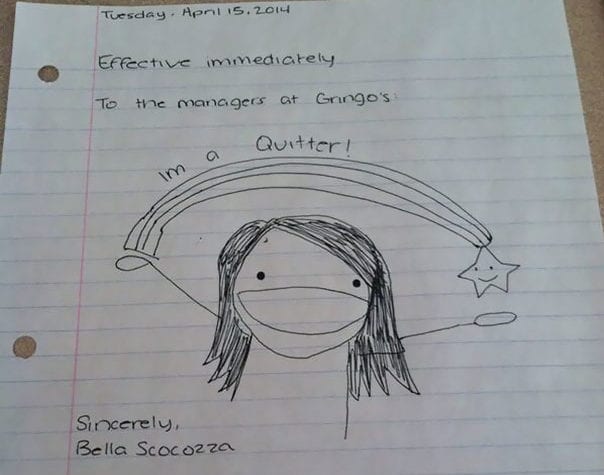 Tuesday. April 15. 2014
Effective immediately
To the managers at Gringo's:
Im a Quitter!
Sincerely,
Bella Scocozza